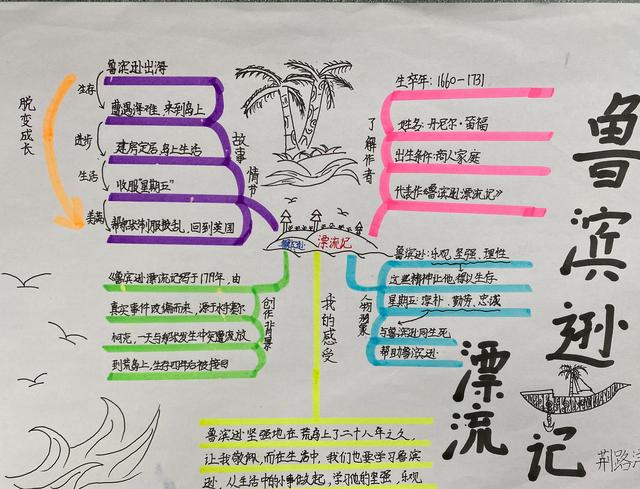 鲁滨逊出海
生存
遭遇海难,来到岛上
进步
建房定居,岛上生活
生活
收服“星期五”
美满
帮船长制服叛乱,回到英国
脱变成长
故事情节
生卒年:1660-1731
姓名:丹尼尔·笛福
出生条件:商人家庭
代表作《鲁滨逊漂流记》
了解作者
鲁滨逊
漂流记
《鲁滨逊漂流记写于1719年,由
真实事件改编而来,源于
柯克,一天与船长发生冲突遭流放
到荒岛上,生存四年后被接回
创作背景
我的感受
鲁滨逊:乐观,坚强,理性
这些精神让他得以生存
星期五:淳朴、勤劳、忠诚
与鲁滨逊同生死
帮助鲁滨逊
人物形象
鲁滨逊坚强地在荒岛上了二十八年之久,
让我敬佩,而在生活中,我们也要学习鲁滨
逊,从生活中的小事做起,学习他的坚强,乐观
鲁滨逊
漂流记
荆路